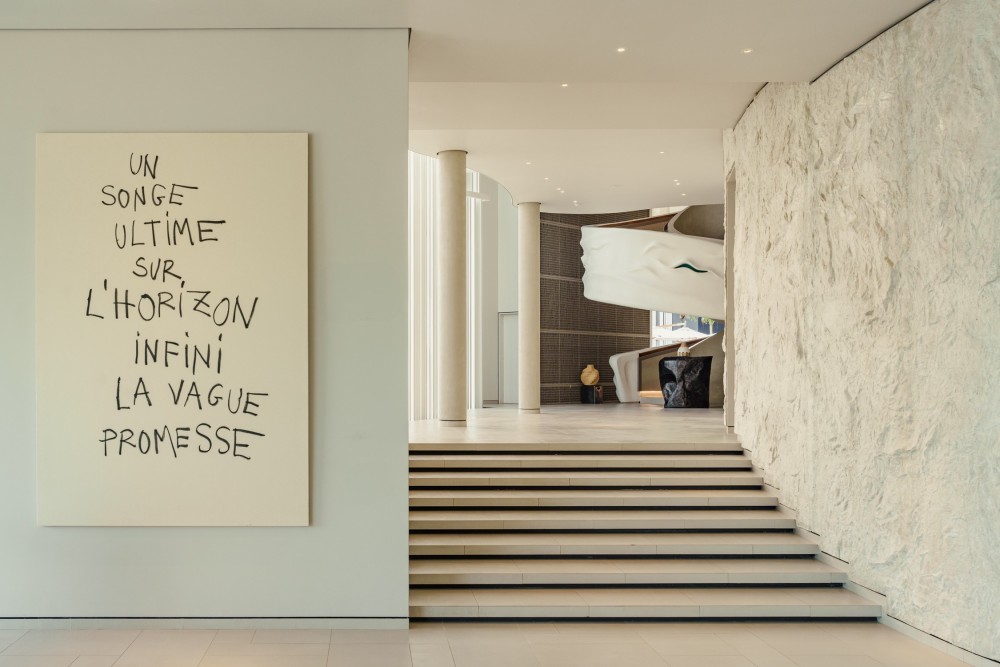 UN
SONGE
ULTIME
SUR
L'HORIZON
INFINI
LA VAGUE
PROMESSE